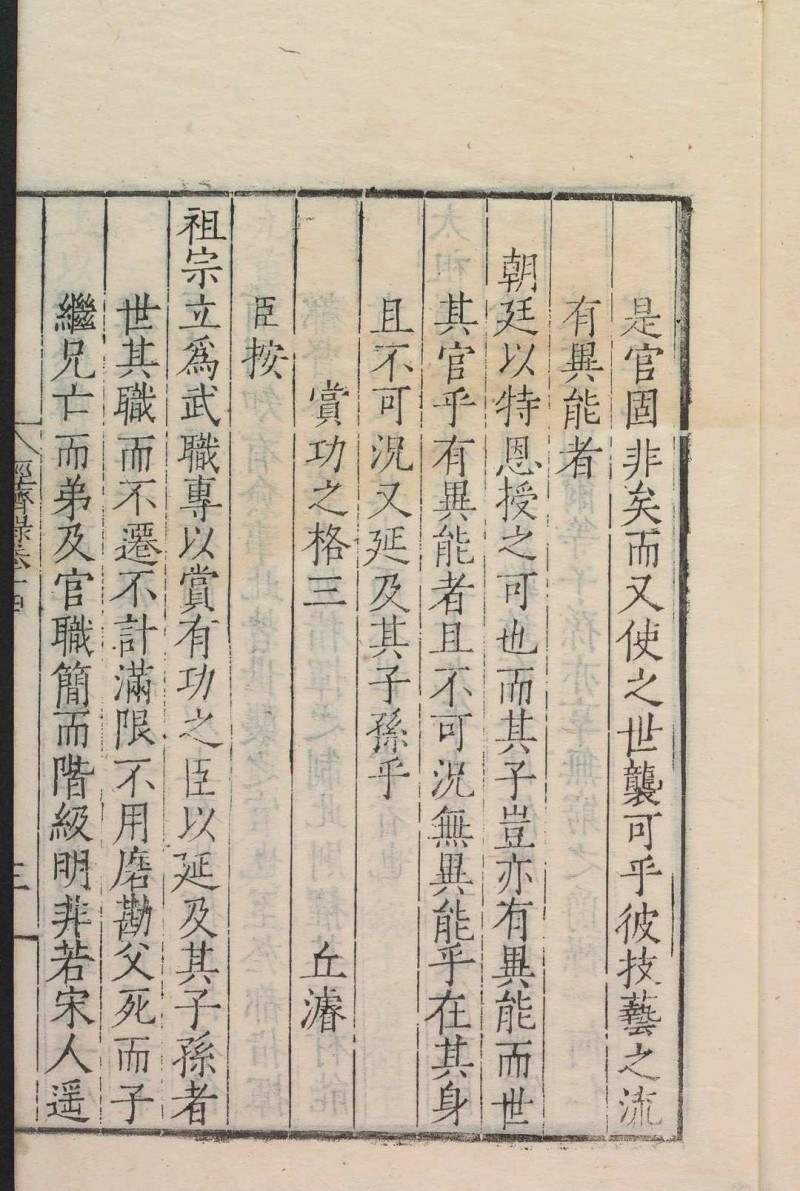 是官固非矣而又使之世襲可乎彼技藝之流
有異能者
朝廷以特恩授之可也而其子豈亦有異能而世
其官乎有異能者且不可況無異能乎在其身
且不可況又延及其子孫乎
賞功之格三 丘濬
臣按
祖宗立爲武職專以賞有功之臣以延及其子孫者
世其職而不遷不計滿限不用磨勘父死而子
繼兄亡而弟及官職簡而階級明非若宋人遥
經濟録卷十四 三